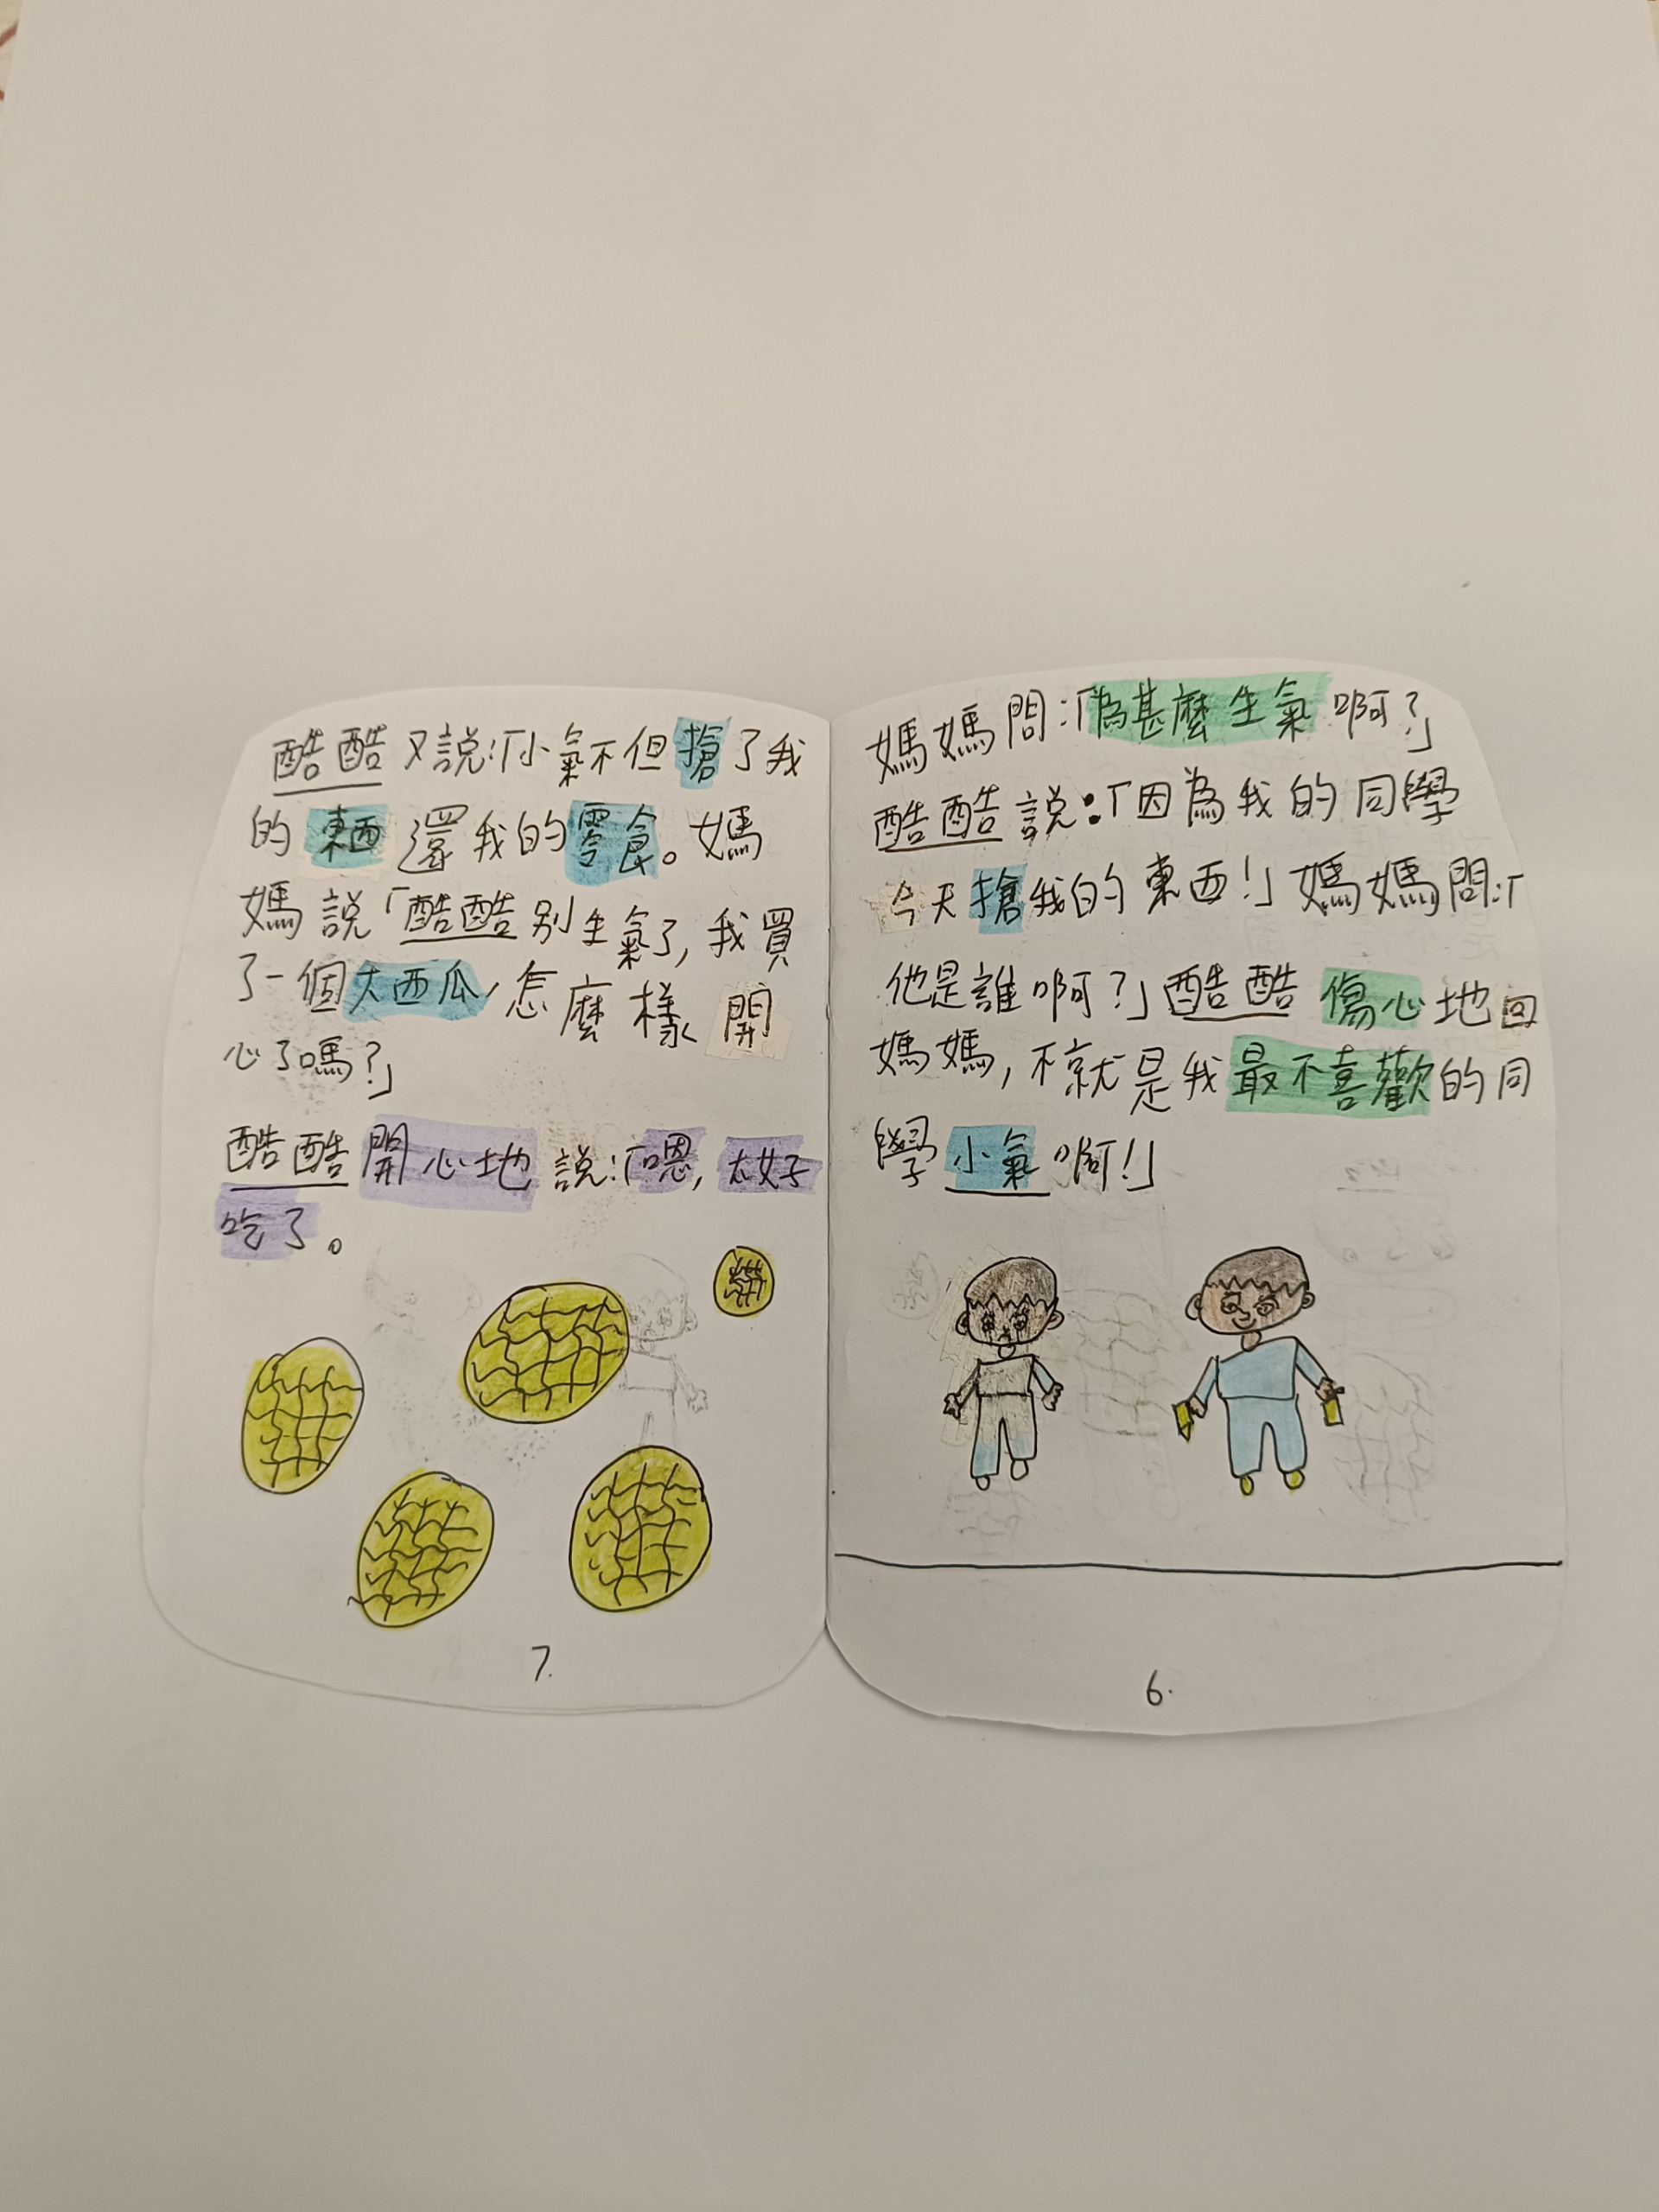 媽媽問:「為甚麼生氣啊?」
酷酷說:「因為我的同學
今天搶我的東西!」媽媽問:「
他是誰啊?」酷酷傷心地回
媽媽,不就是我最不喜歡的同
學小氣啊!」
6.
酷酷又說:「小氣不但搶了我
的東西還我的零食。媽
媽說「酷酷别生氣了,我買
了一個大西瓜,怎麼樣開
心了嗎?」
酷酷開心地說:「嗯,太好
吃了。
7.